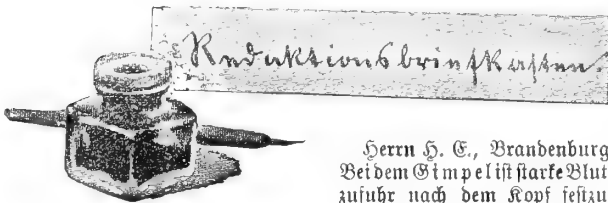 Redaktionsbriefkasten.
Herrn H. E., Brandenburg
Bei dem Gimpel ist starke Blut
zufuhr nach dem Kopf festzu